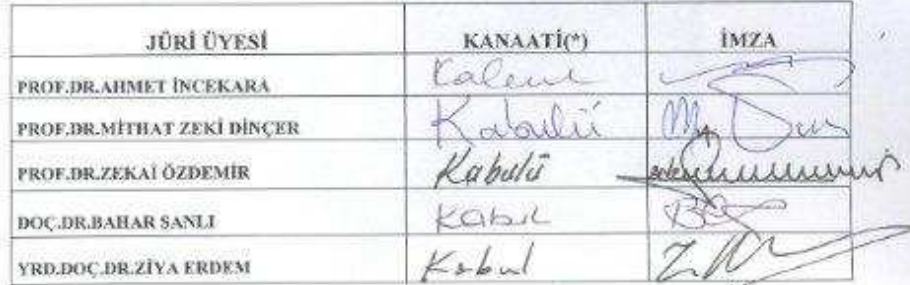 JÜRİ ÜYESİ KANAATİ(*) İMZA
PROF.DR.AHMET İNCEKARA
PROF.DR.MİTHAT ZEKİ DİNÇER Kabulü
PROF.DR.ZEKAİ ÖZDEMİR Kabulü
DOÇ.DR.BAHAR SANLI Kabul
YRD.DOÇ.DR.ZİYA ERDEM Kabul